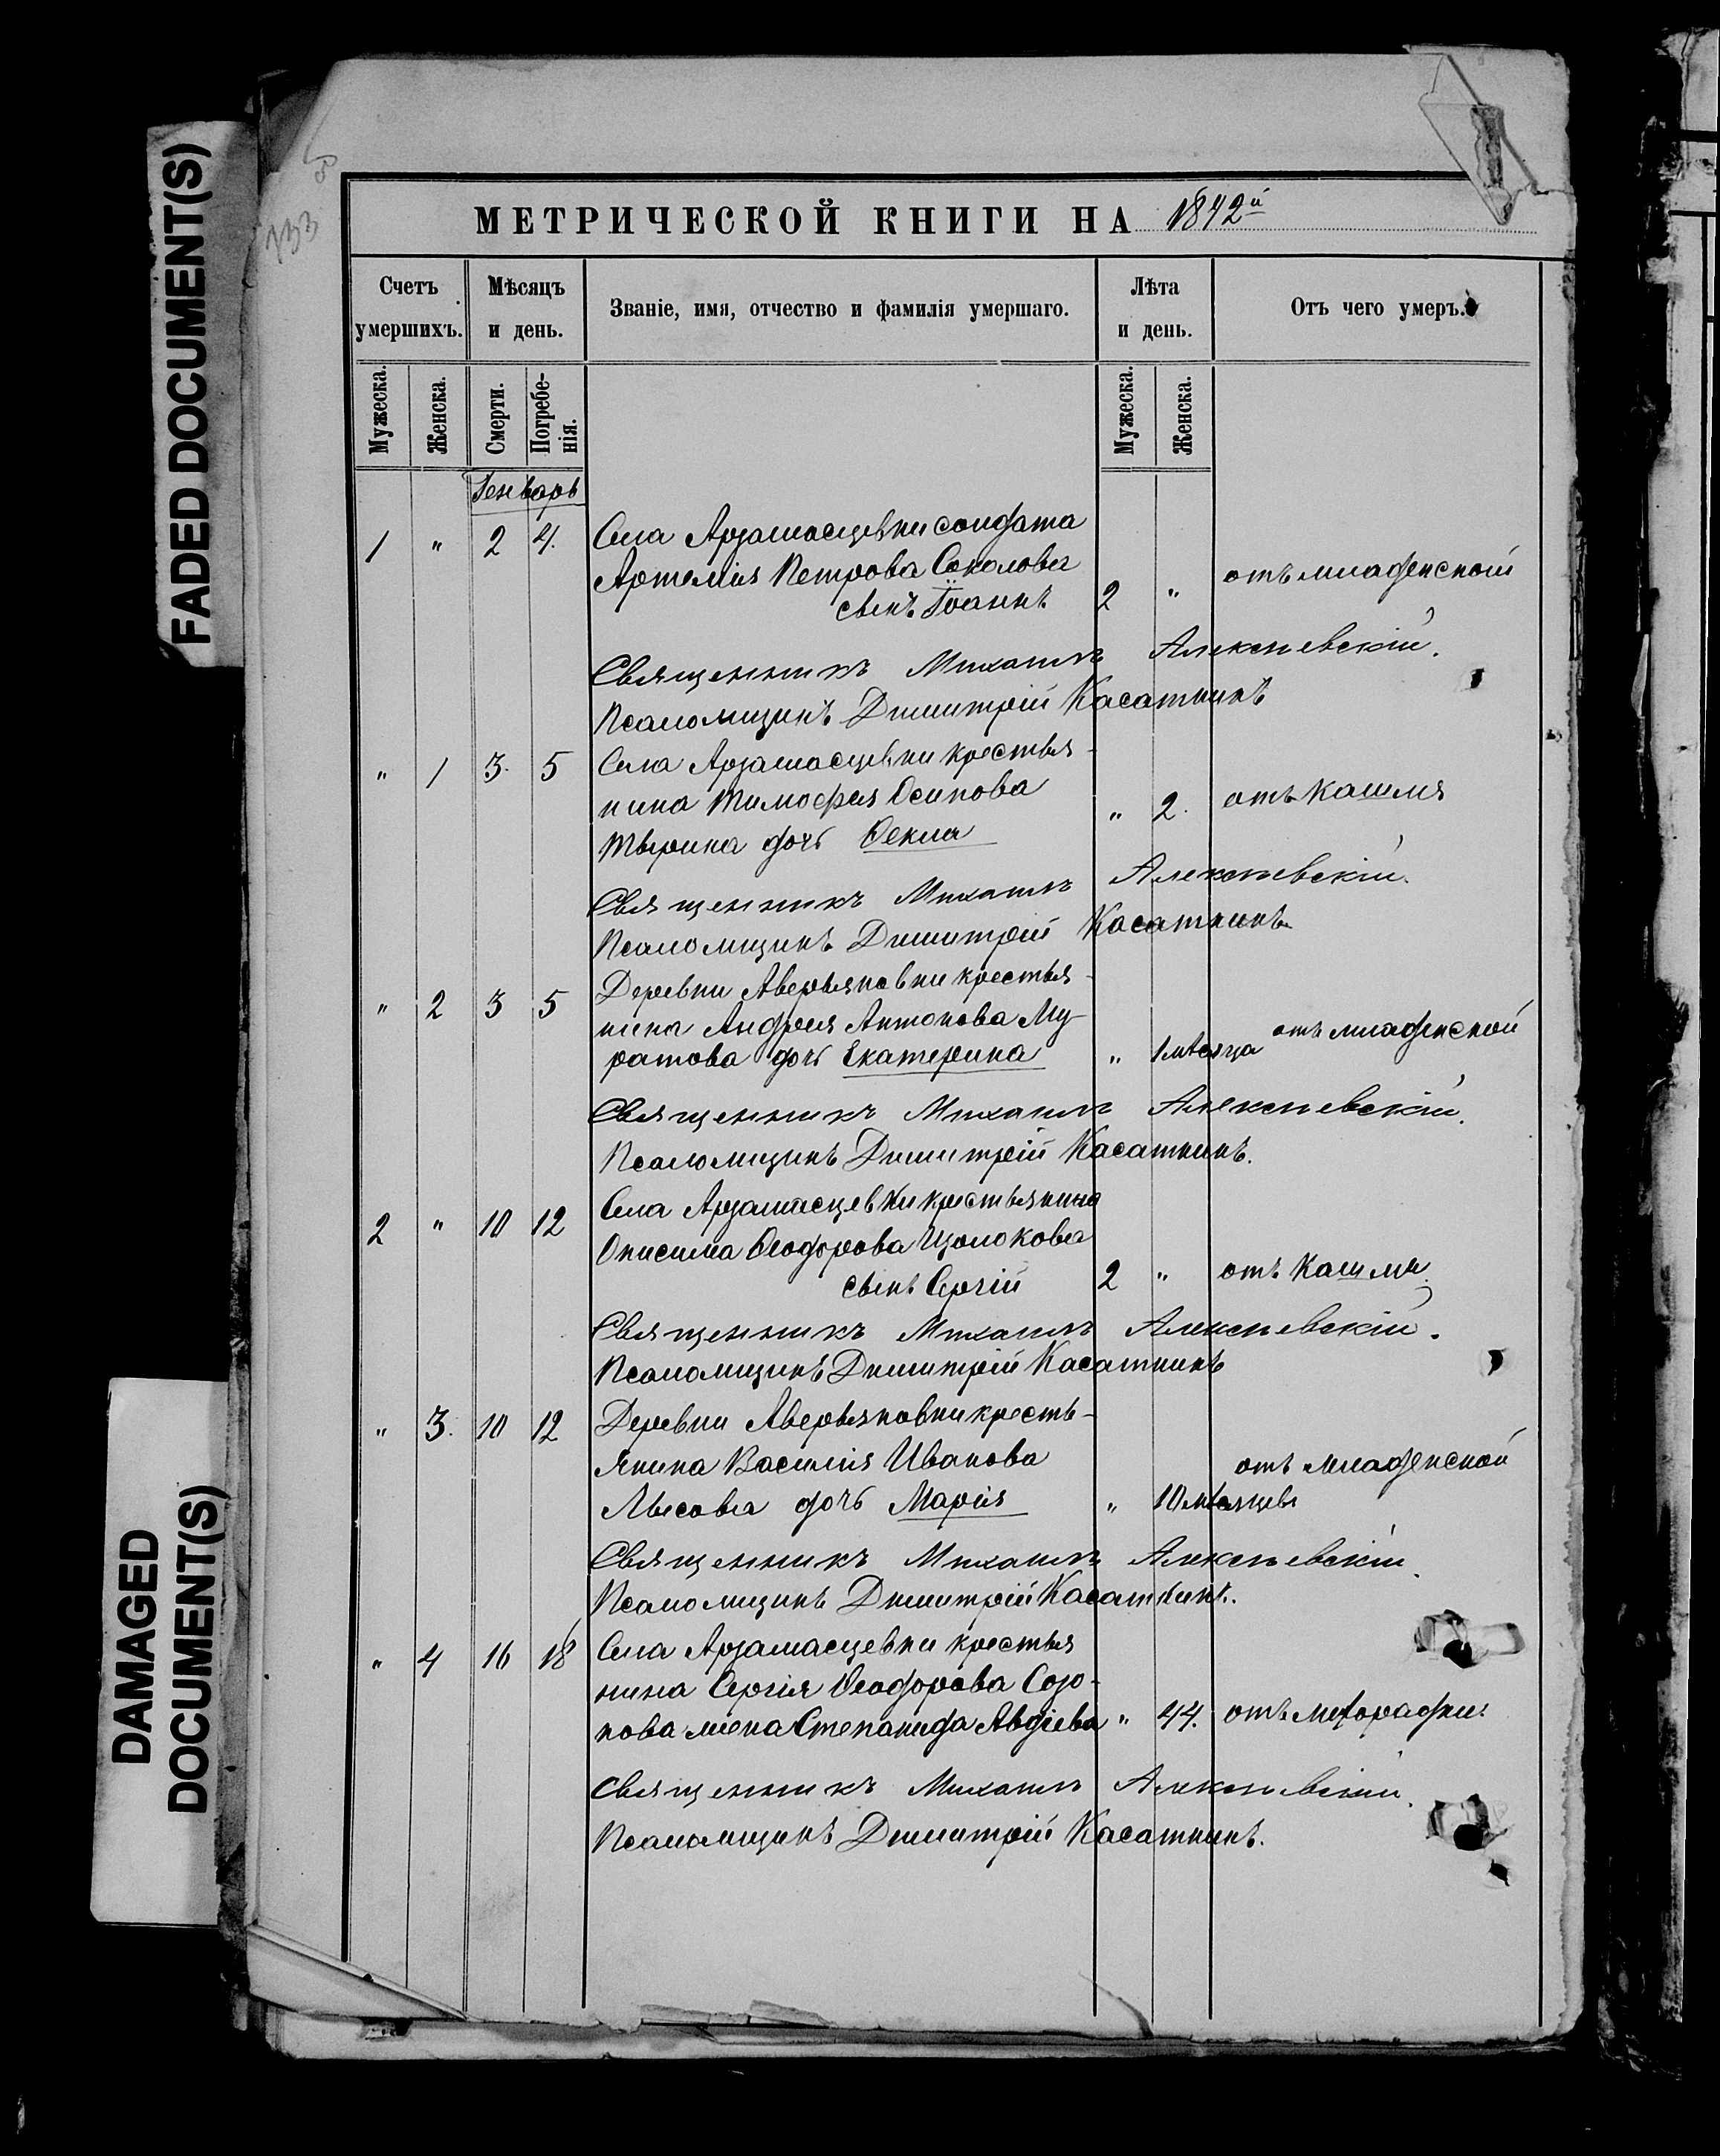 FADED DOCUMENT(S)
DAMAGED
DOCUMENT(S)
МЕТРИЧЕСКОЙ КНИГИ НА 1892й
Счетъ умершихъ.
Мѣсяцъ и день.
Званіе, имя, отчество и фамилія умершаго.
Лѣта и день.
Отъ чего умеръ.
Мужеска. Женска. Смерти. Погребе-нія. Мужеска. Женска.
Генварь
1 " 2 4. Села Арзамасцевки солдата
Артемія Петрова Соколова
сынъ Іоаннъ 2 " отъ младенской
Священникъ Михаилъ Алексѣевскій.
Псаломщикъ Димитрій Касаткинъ
" 1 3. 5 Села Арзамасцевки крестья-
нина Тимофея Осипова
дочь Ѳекла " 2. отъ кашля
Священникъ Михаилъ Алексѣевскій.
Псаломщикъ Димитрій Касаткинъ
" 2 3 5 Деревни Аверьяновки крестья-
нина Андрея Антонова Му-
ратова дочь Екатерина " 1 мѣсяца отъ младенской
Священникъ Михаилъ Алексѣевскій.
Псаломщикъ Димитрій Касаткинъ.
2 " 10 12 Села Арзамасцевки крестьянина
Онисима Ѳеодорова Щолокова
сынъ Сергій 2 " отъ кашля
Священникъ Михаилъ Алексѣевскій.
Псаломщикъ Димитрій Касаткинъ
" 3. 10 12 Деревни Аверьяновки кресть-
янина Василія Иванова
Лысова дочь Марія " 10 мѣсяцевъ отъ младенской
Священникъ Михаилъ Алексѣевскій
Псаломщикъ Димитрій Касаткинъ.
" 4 16 18 Села Арзамасцевки крестья
нина Сергія Ѳеодорова Созо-
нова жена Степанида Авдіева " 44. отъ лихорадки
Священникъ Михаилъ Алексѣевскій.
Псаломщикъ Димитрій Касаткинъ.